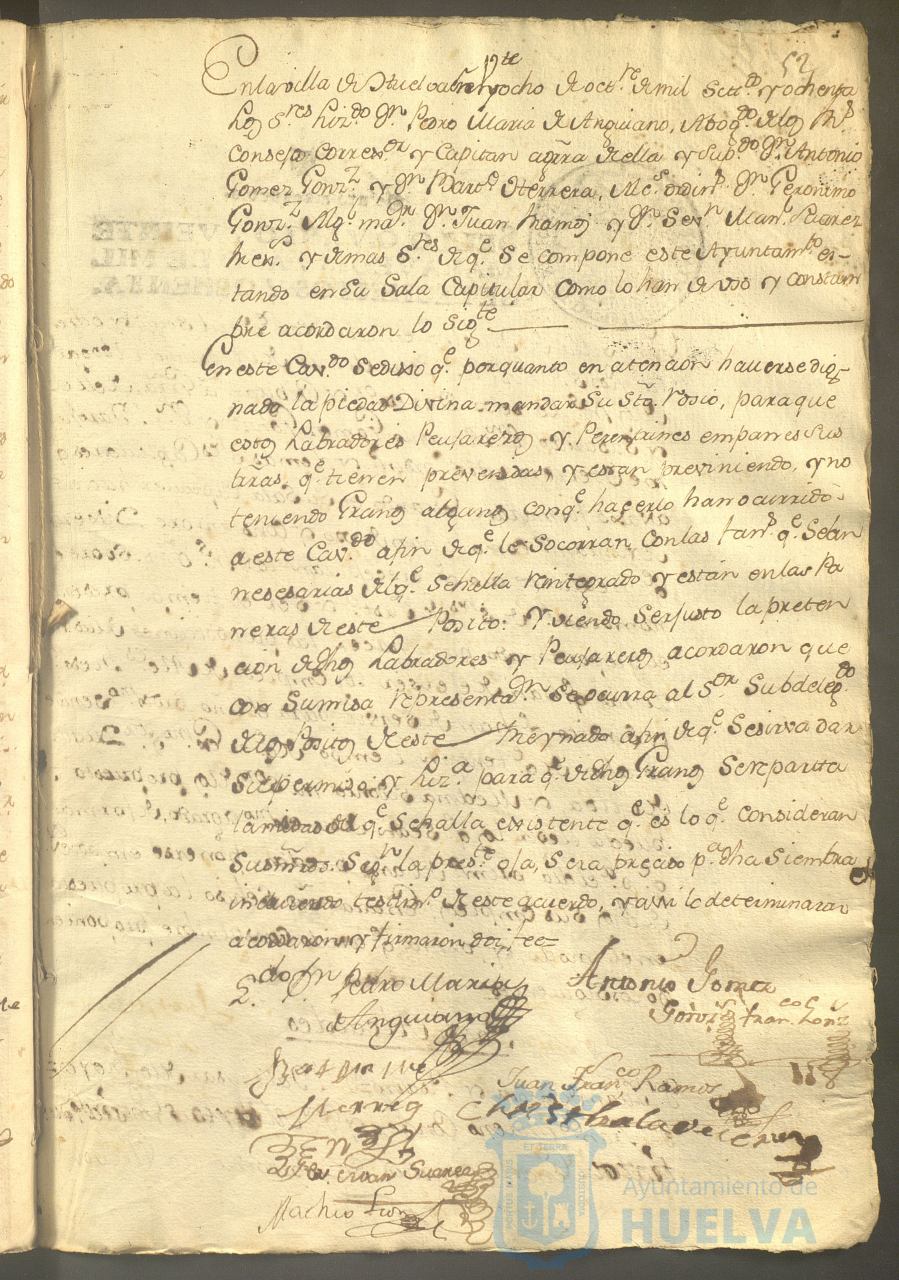 52
En la villa de Huelva en veynte y ocho de octre de mil setcos y ochenta
Los Sres Lizdo Dn Pedro Maria de Anguiano, Abogdo de los Rs
Consejos Corregor y Capitan a grra de ella y Subdo Dn Antonio
Gomez Gonzz y Dn Barte Herrera, Alces ordins Dn Geronimo
Gonzz Algl mar Dn Juan Ramos y Dn Sevn Manl Suarez
y demas Sres de qe se compone este Ayuntamto es-
tando en su Sala Capitular como lo han de uso y constum
bre acordaron lo Sigte
En este Cavdo se dixo qe porquanto en atencion haverse dig-
nado la piedad Divina mandar su Sto Rosio, para que
estos Labradores Peujareros y Perentrines empanes sus
tierras qe tienen prevenidas, y estan previniendo, y no
teniendo Granos algunos con qe hazerlo han ocurrido
a este Cavdo a fin de qe le socorran con las fans qe sean
nesesarias de lo qe se halla reintegrado y estan en las Pa
neras de este Posito: Y viendo ser justo la preten
cion de dhos Labradores y Peujareros acordaron que
con sumisa representan se ocurra al Sor Subdelegdo
de los Positos de este Reynado a fin de qe se sirva dar
su permiso y Liza para qe de dhos Granos se reparta
la mitad de qe se halla existente qe es lo qe consideran
sus mrds Segn la preste ola, sera preciso pa dha Siembra
testimo de este acuerdo, y assi lo determinaron
acordaron y firmaron doi fee
Ldo Dn Pedro Maria
de Anguiano
Antonio Gomez
Gonzs
Franco
Bartme
Herrera
Juan Franco Ramos
Juan Suarez
Ayuntamiento de
HUELVA